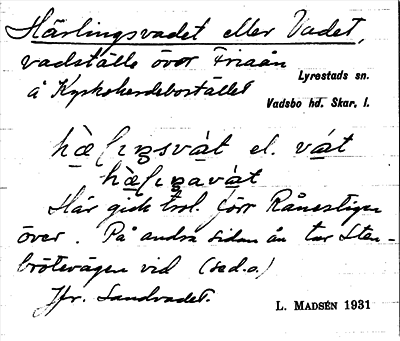 Härlingsvadet eller Vadet,
vadställe över Friaån
Lyrestads sn.
å Kyrkoherdebostället
Vadsbo hd. Skar. l.
el. vát
Här gick trol. förr Rånestigen
över. På andra sidan ån tar Sten-
brötevägen vid (se d.o.)
Jfr. Sandvadet.
L. MADSÉN 1931